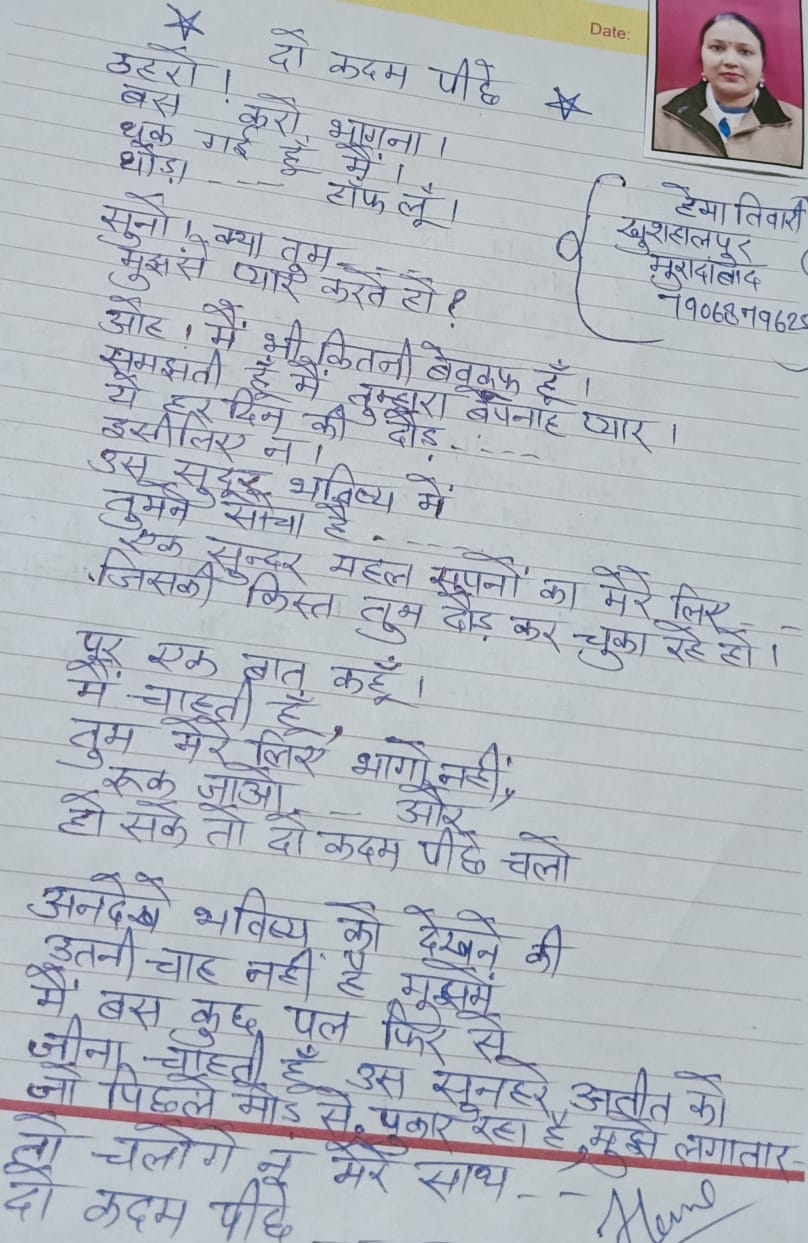 Date:
दो कदम पीछे
ठहरो !
बस करो, भागना ।
थक गई हूँ मैं ।
थोड़ा ---- हाँफ लूँ ।
सुनो । क्या तुम ----
मुझसे प्यार करते हो ?
ओह ! मैं भी कितनी बेवकूफ हूँ ।
समझती हूँ मैं तुम्हारा बेपनाह प्यार ।
ये हर दिन की दौड़ -----
इसीलिए न ।
उस सुदूर भविष्य में
तुमने सोचा है -----
एक सुन्दर महल सपनों का मेरे लिए --
जिसकी किस्त तुम दौड़ कर चुका रहे हो ।
पर एक बात कहूँ ।
मैं चाहती हूँ,
तुम मेरे लिए भागो नहीं,
रूक जाओ -- और
हो सके तो दो कदम पीछे चलो
अनदेखे भविष्य को देखने की
उतनी चाह नहीं है मुझमें
मैं बस कुछ पल फिर से
जीना चाहती हूँ उस सुनहरे अतीत को
जो पिछले मोड़ से पुकार रहा है मुझे लगातार -
तो चलोगे न मेरे साथ --
दो कदम पीछे
हेमा तिवारी
खुशहालपुर
मुरादाबाद